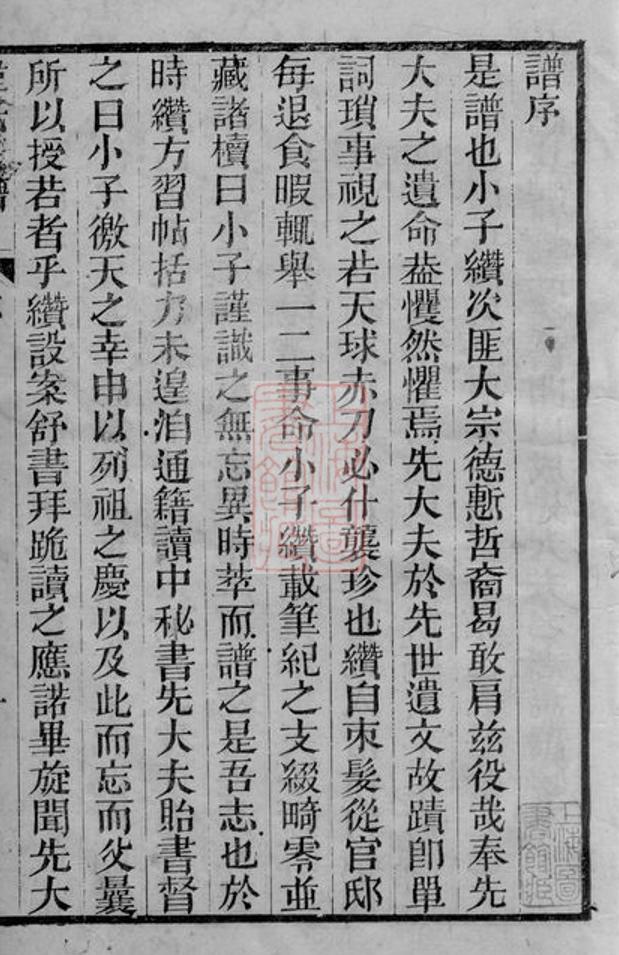 譜序
是譜也小子纘次匪大宗德慙哲裔曷敢肩兹役哉奉先
大夫之遺命葢懼然懼焉先大夫於先世遺文故蹟卽單
詞瑣事視之若天球赤刀必什襲珍也纘自束髮從官邸
每退食暇輒舉一二事命小子纘載筆紀之支綴畸零並
藏諸櫝曰小子謹識之無忘異時萃而譜之是吾志也於
時纘方習帖括力未遑洎通籍讀中秘書先大夫貽書督
之曰小子徼天之幸申以列祖之慶以及此而忘而父曩
所以授若者乎纘設案舒書拜跪讀之應諾畢旋聞先大
上海圖書館藏